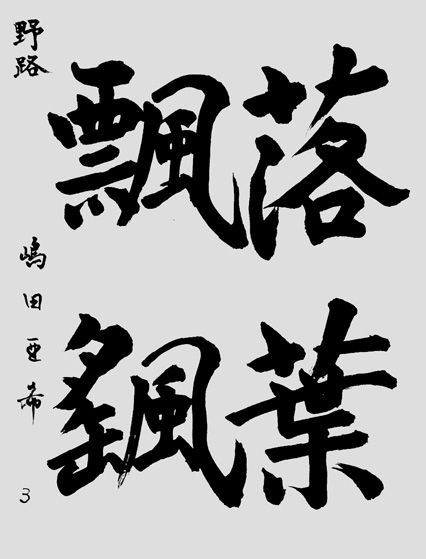 落葉
飄颻
野路 嶋田亜希 3